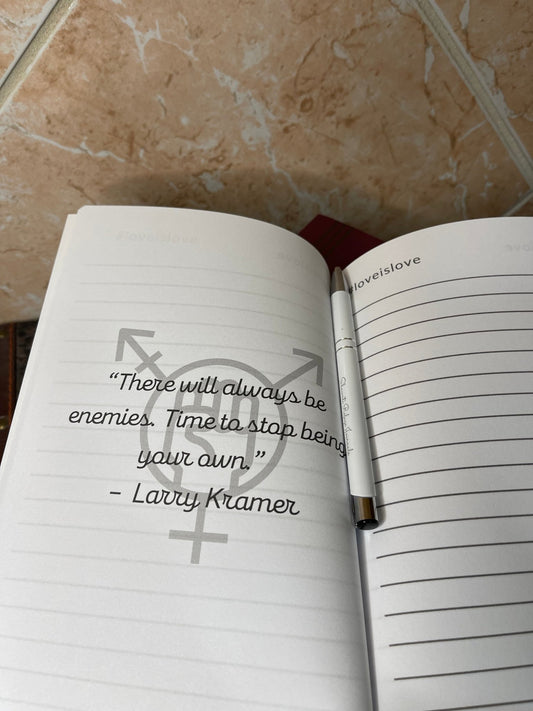 “There will always be
enemies. Time to stop being
your own.”
- Larry Kramer
#loveislove